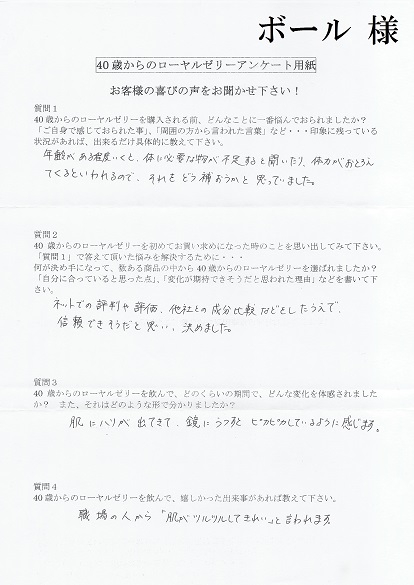 ボール 様
40歳からのローヤルゼリーアンケート用紙
お客様の喜びの声をお聞かせ下さい！
質問1
40歳からのローヤルゼリーを購入される前、どんなことに一番悩んでおられましたか？
「ご自身で感じておられた事」、「周囲の方から言われた言葉」など・・・印象に残っている
状況があれば、出来るだけ具体的に教えて下さい。
年齢がある程度いくと、体に必要な物が不足すると聞いたり、体力がおとろえ
てくるといわれるので、それをどう補おうかと思っていました。
質問2
40歳からのローヤルゼリーを初めてお買い求めになった時のことを思い出してみて下さい。
「質問1」で答えて頂いた悩みを解決するために・・・
何が決め手になって、数ある商品の中から40歳からのローヤルゼリーを選ばれましたか？
「自分に合っていると思った点」、「変化が期待できそうだと思われた理由」などを書いて下
さい。
ネットでの評判や評価、他社との成分比較などをしたうえで、
信頼できそうだと思い、決めました。
質問3
40歳からのローヤルゼリーを飲んで、どのくらいの期間で、どんな変化を体感されました
か？ また、それはどのような形で分かりましたか？
肌にハリが出てきて、鏡にうつすと ピカピカしているように感じます。
質問4
40歳からのローヤルゼリーを飲んで、嬉しかった出来事があれば教えて下さい。
職場の人から「肌がツルツルしてきれい」と言われます